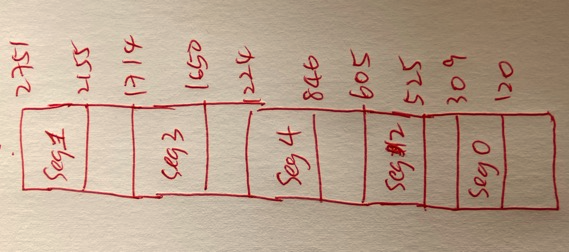 2751
2155
1714
1650
1224
846
605
525
309
120
Seg1
Seg3
Seg4
Seg2
Seg0